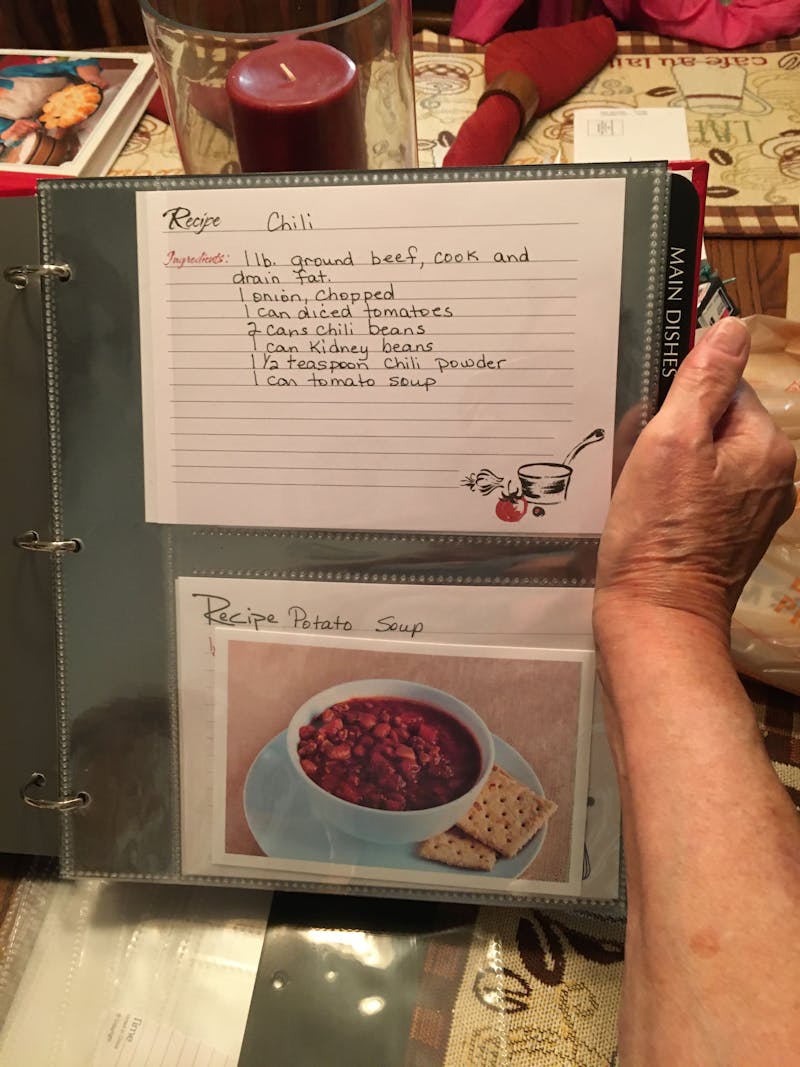 cafe au lait
LAT
Recipe Chili
Ingredients: 1 lb. ground beef, cook and
drain fat.
1 onion, chopped
1 can diced tomatoes
2 cans chili beans
1 can Kidney beans
1 1/2 teaspoon Chili powder
1 can tomato soup
MAIN DISHES
Recipe Potato Soup
Time